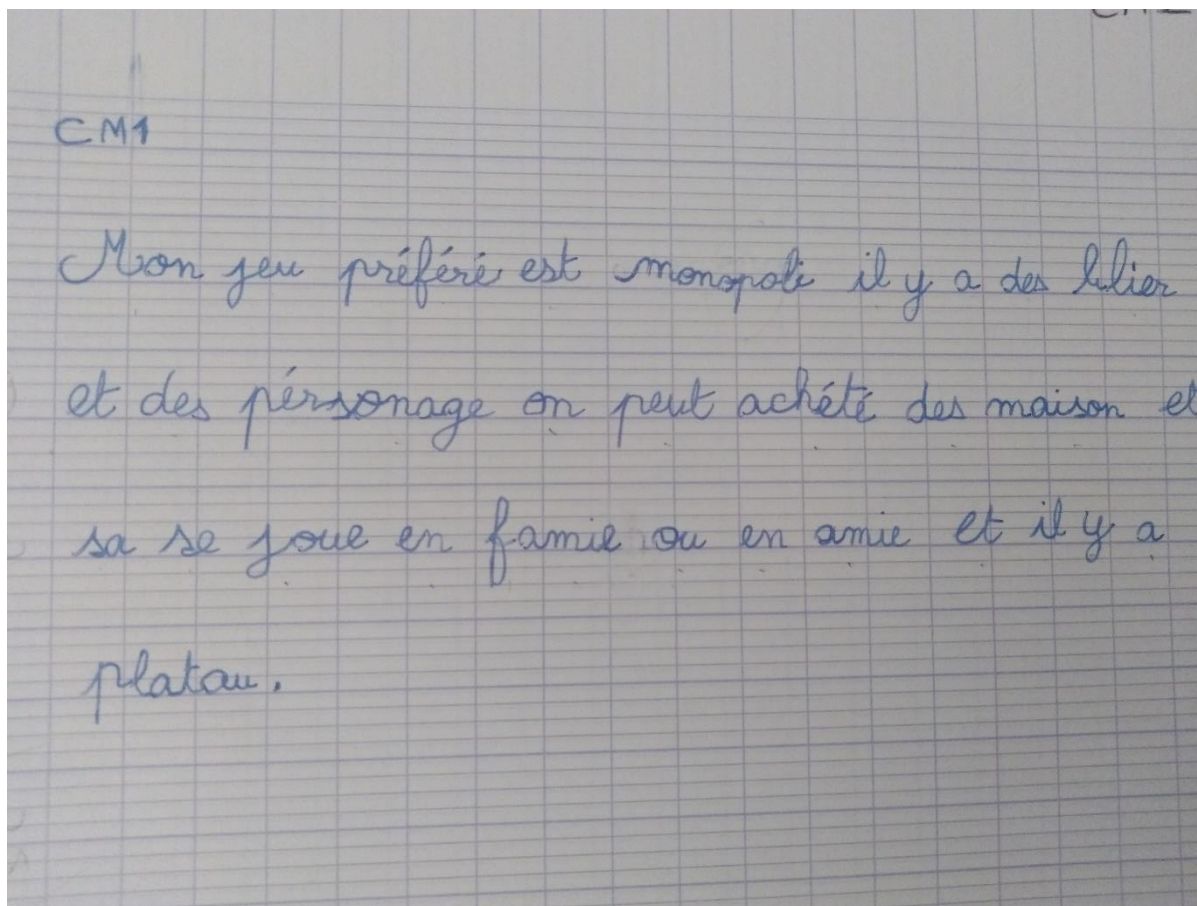 CM1
Mon jeu préféré est monopoli il y a des
et des pérsonage on peut achété des maison et
sa se joue en famie ou en amie et il y a
platau.